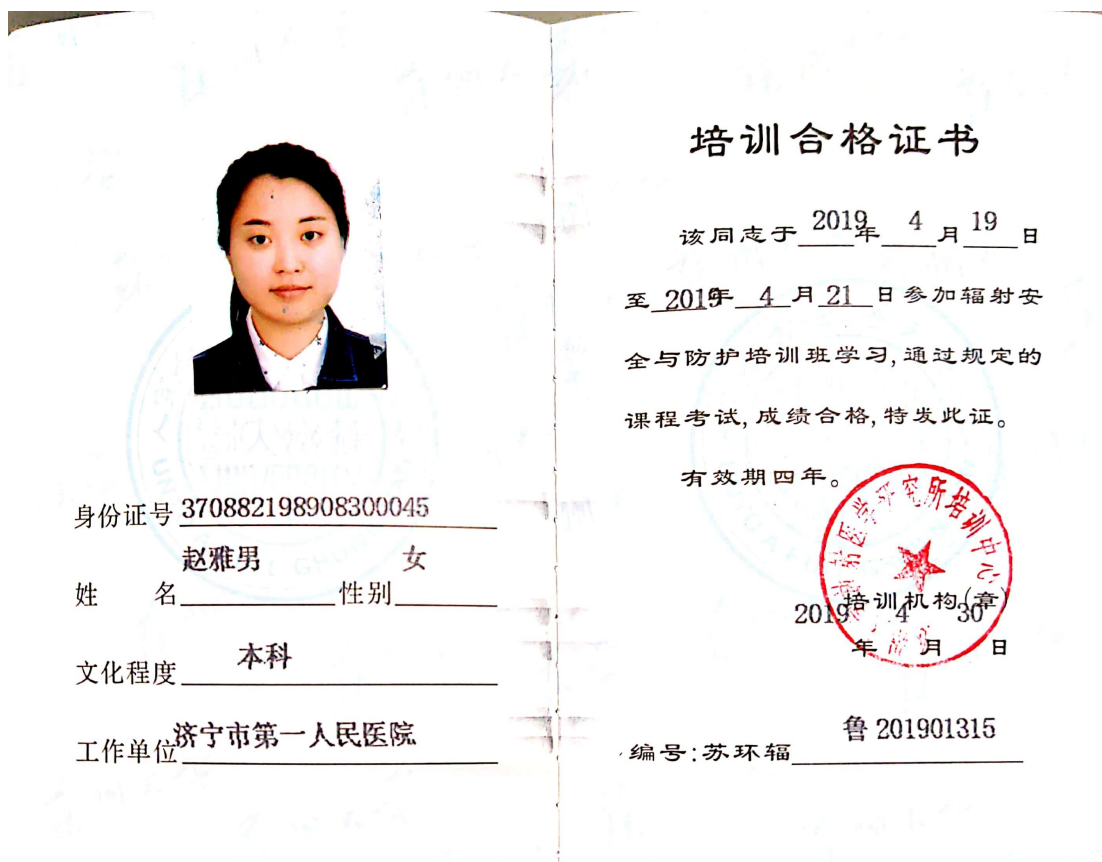 身份证号 370882198908300045
姓名 赵雅男 性别 女
文化程度 本科
工作单位 济宁市第一人民医院
培训合格证书
该同志于 2019年 4 月 19 日
至 2019年 4 月 21 日参加辐射安
全与防护培训班学习,通过规定的
课程考试,成绩合格,特发此证。
有效期四年。
医学研究所培训中心
培训机构(章)
2019年 4月 30日
编号:苏环辐 鲁 201901315